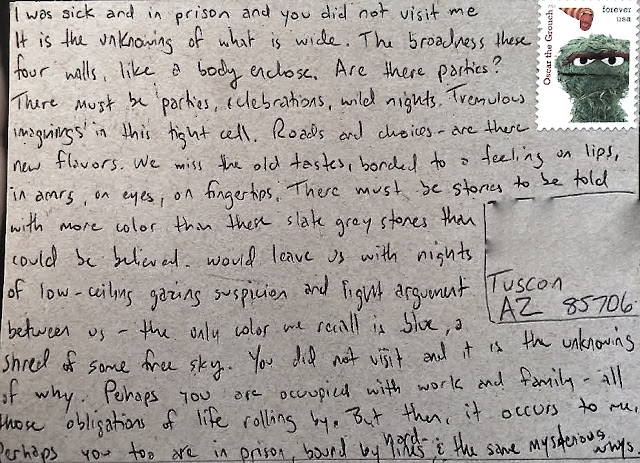 I was sick and in prison and you did not visit me
It is the unknowing of what is wide. The broadness these
four walls, like a body enclose. Are there parties?
There must be parties, celebrations, wild nights. Tremulous
imaginings in this tight cell. Roads and choices - are there
new flavors. We miss the old tastes, bonded to a feeling on lips,
in amrs, on eyes, on fingertips. There must be stories to be told
with more color than these slate gray stones than
could be believed. would leave us with nights
of low-ceiling gazing suspicion and light argument
between us - the only color we recall is blue, a
shred of some free sky. You did not visit and it is the unknowing
of why. Perhaps you are occupied with work and family - all
those obligations of life rolling by. But then, it occurs to me,
Perhaps you too are in prison, bound by hard-
lines & the same mysterious whys
Oscar the Grouch
forever
usa
Tuscon
AZ 85706